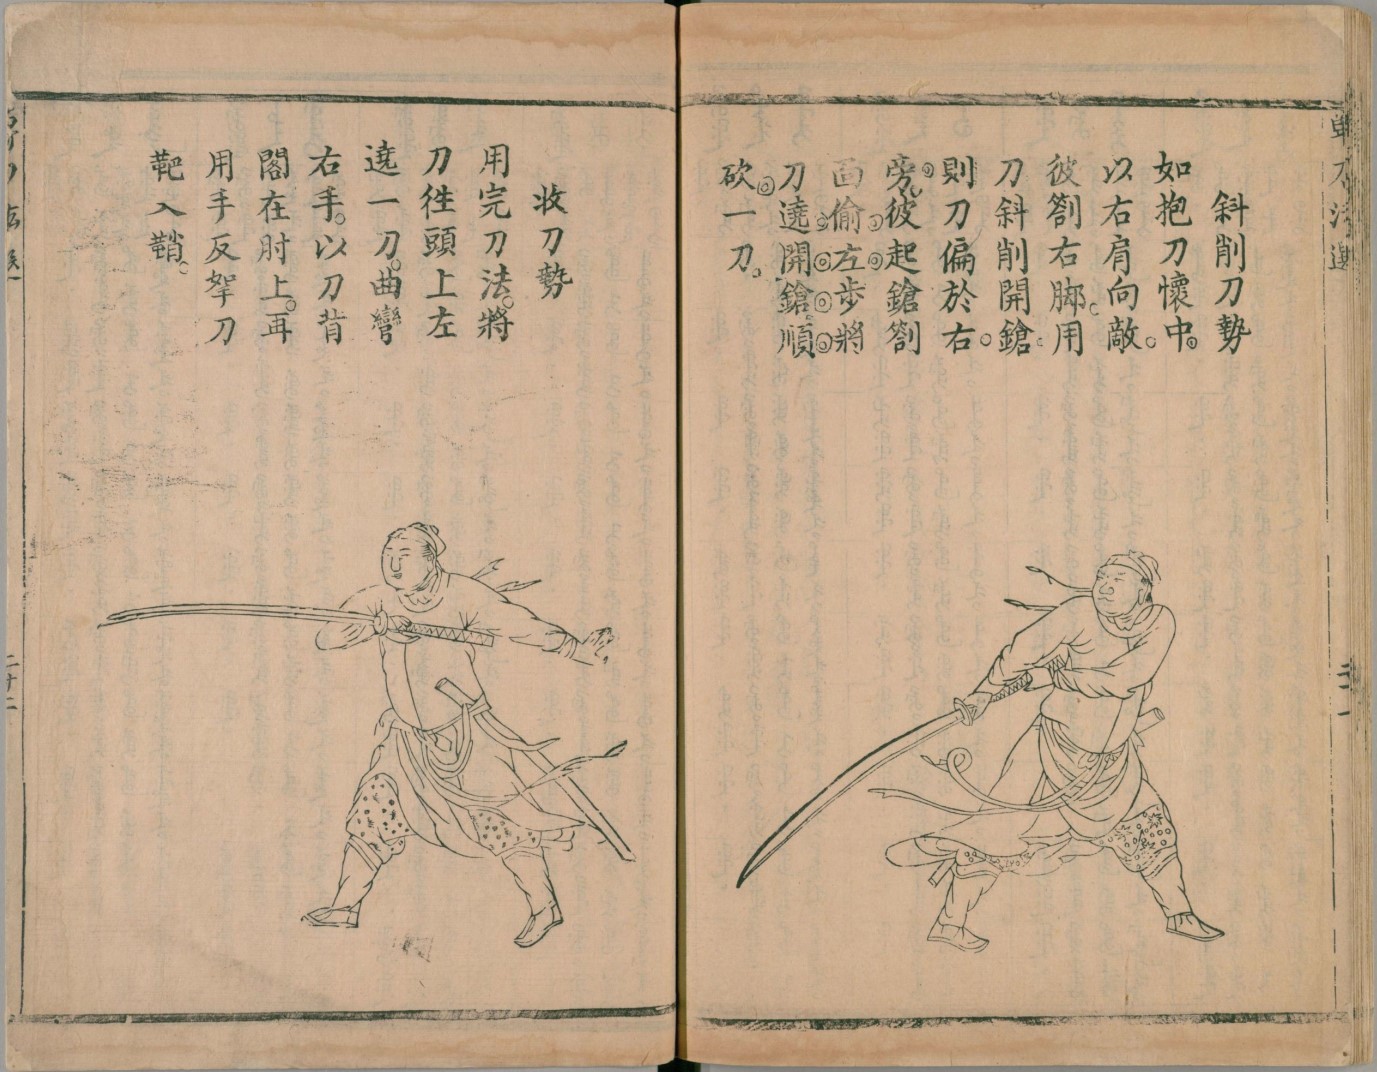 單刀法選
斜削刀勢
如抱刀懷中
以右肩向敵
彼劄右脚用
刀斜削開鎗
則刀偏於右
旁彼起鎗劄
面偷左步將
刀遶開鎗順
砍一刀
收刀勢
用完刀法將
刀徃頭上左
遶一刀曲彎
右手以刀背
閣在肘上再
用手反拏刀
靶入鞘